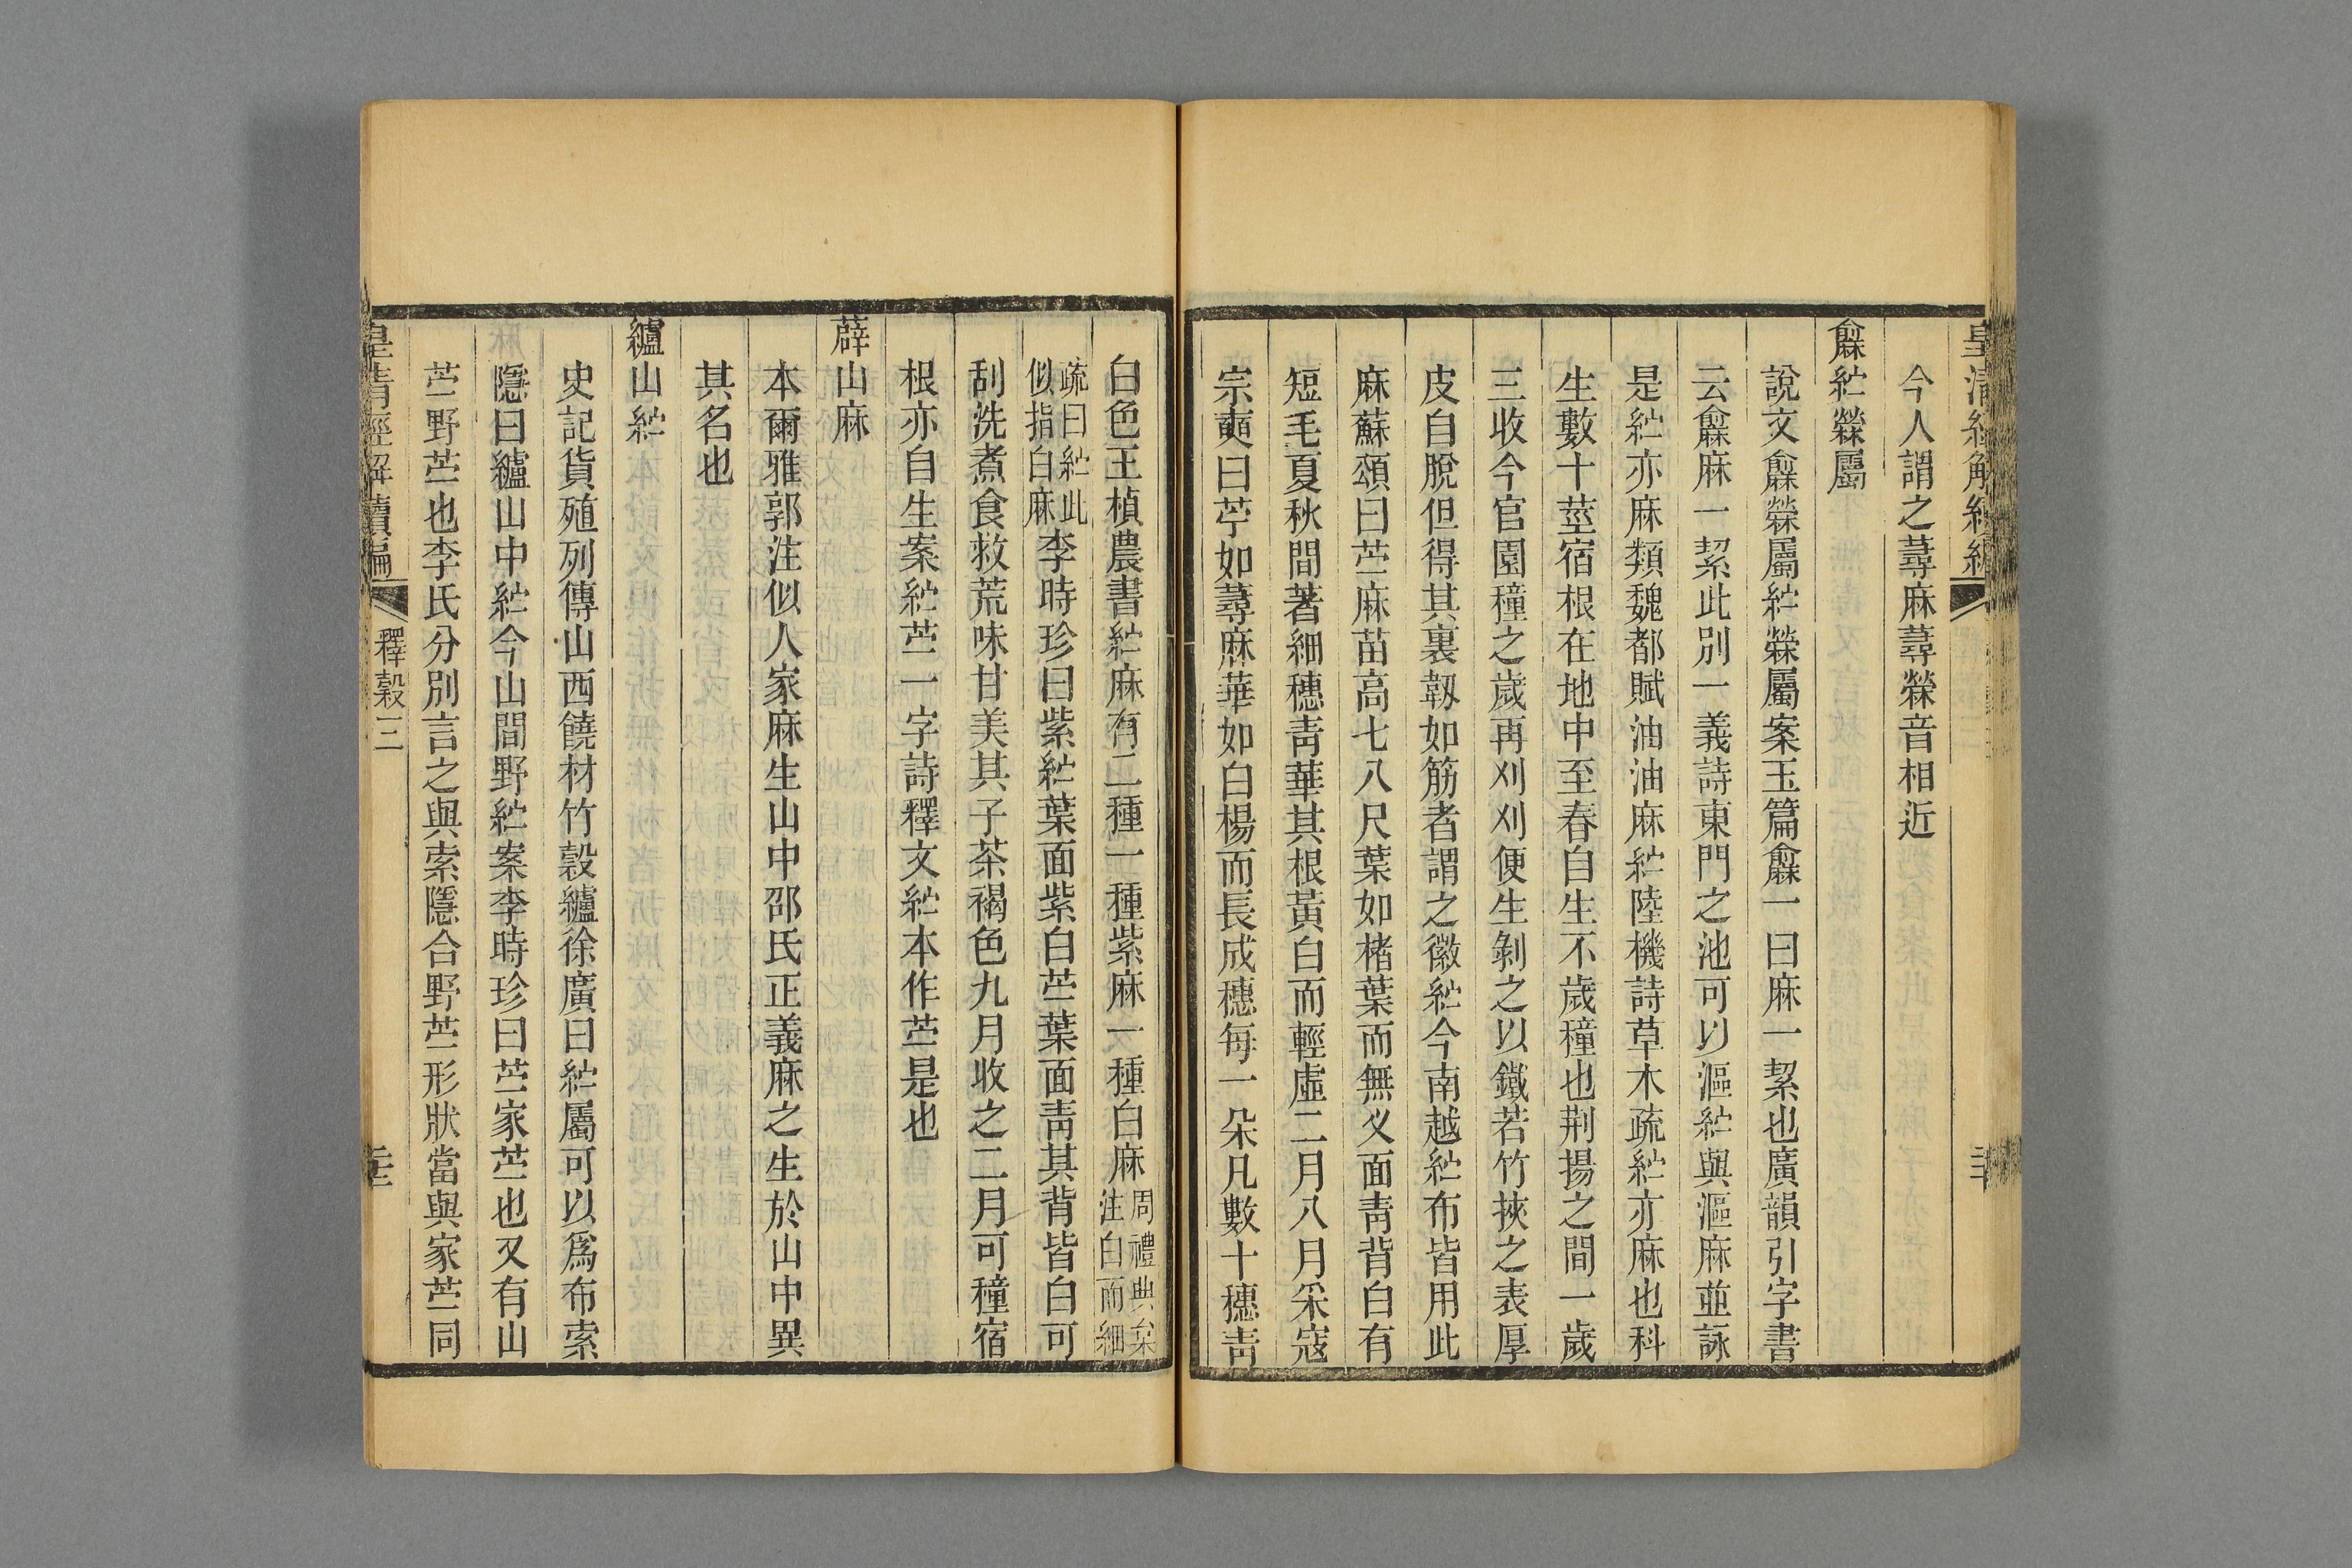 今人謂之蕁麻蕁檾音相近
䋛紵檾屬
說文䋛檾屬紵檾屬案玉篇䋛一曰麻一絜也廣韻引字書
云䋛麻一絜此別一義詩東門之池可以漚紵與漚麻並詠
是紵亦麻類魏都賦油油麻紵陸機詩草木疏紵亦麻也科
生數十莖宿根在地中至春自生不歲穜也荆揚之間一歲
三收今官園種之歲再刈刈便生剝之以鐵若竹挾之表厚
皮自脫但得其裏韌如筋者謂之徽紵今南越紵布皆用此
麻蘇頌曰苎麻苗高七八尺葉如楮葉而無叉面青背白有
短毛夏秋間著細穗青華其根黃白而輕虛二月八月采寇
宗奭曰苧如蕁麻華如白楊而長成穗每一朵凡數十穗青
白色王楨農書紵麻有二種一種紫麻一種白麻周禮典枲
注白而細
疏曰紵此
似指白麻李時珍曰紫紵葉面紫白苎葉面青其背皆白可
刮洗煮食救荒味甘美其子茶褐色九月收之二月可穜宿
根亦自生案紵苎一字詩釋文紵本作苎是也
薜山麻
本爾雅郭注似人家麻生山中邵氏正義麻之生於山中異
其名也
纑山紵
史記貨殖列傳山西饒材竹穀纑徐廣曰紵屬可以爲布索
隱曰纑山中紵今山間野紵案李時珍曰苎家苎也又有山
苎野苎也李氏分別言之與索隱合野苎形狀當與家苎同
皇清經解續編
釋穀三